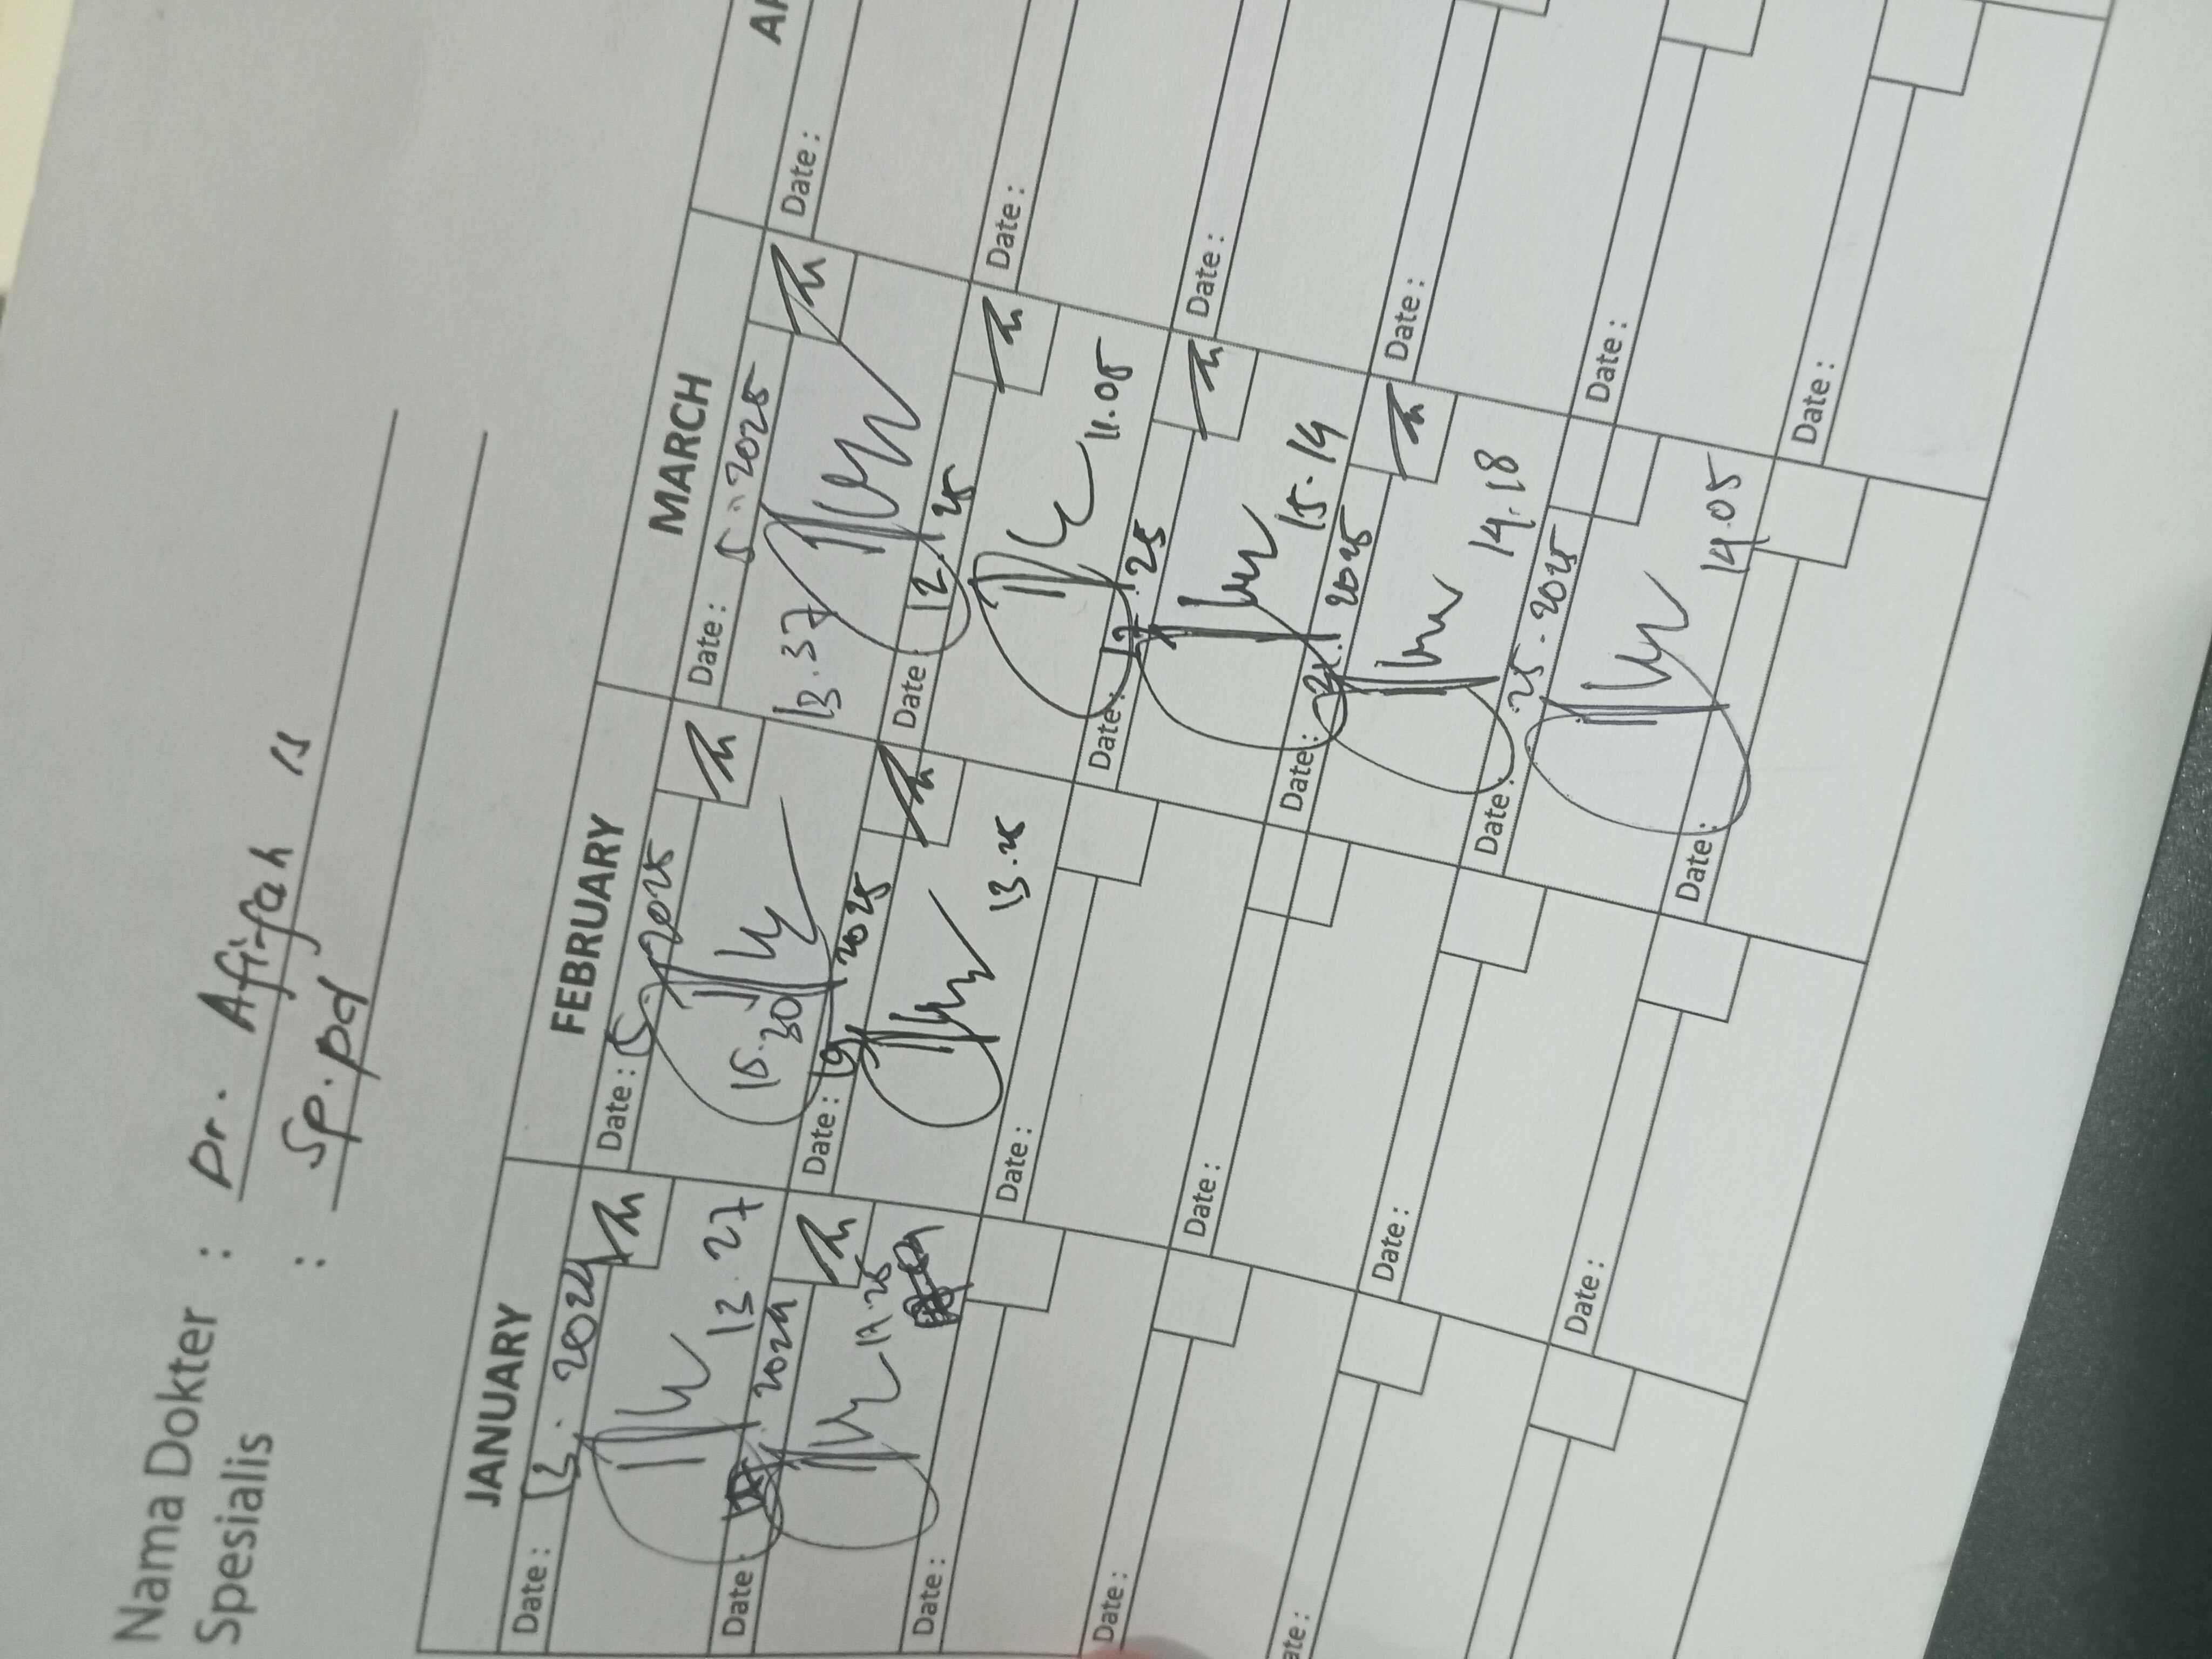 Nama Dokter : Dr. Afifah is
Spesialis : Sp.pd
JANUARY FEBRUARY MARCH
Date: 13. 2024
13.27
Date: 2024
Date:
Date:
Date:
Date: 5 2025
15.30
Date: 19 2025
13.25
Date:
Date:
Date:
Date:
Date: 5 . 2025
13.37
Date: 12 . 25
11.05
Date: 17 . 25
15.14
Date: 21. 2025
14.18
Date: 25 . 2025
14.05
Date:
Date:
Date:
Date:
Date:
Date:
Date: